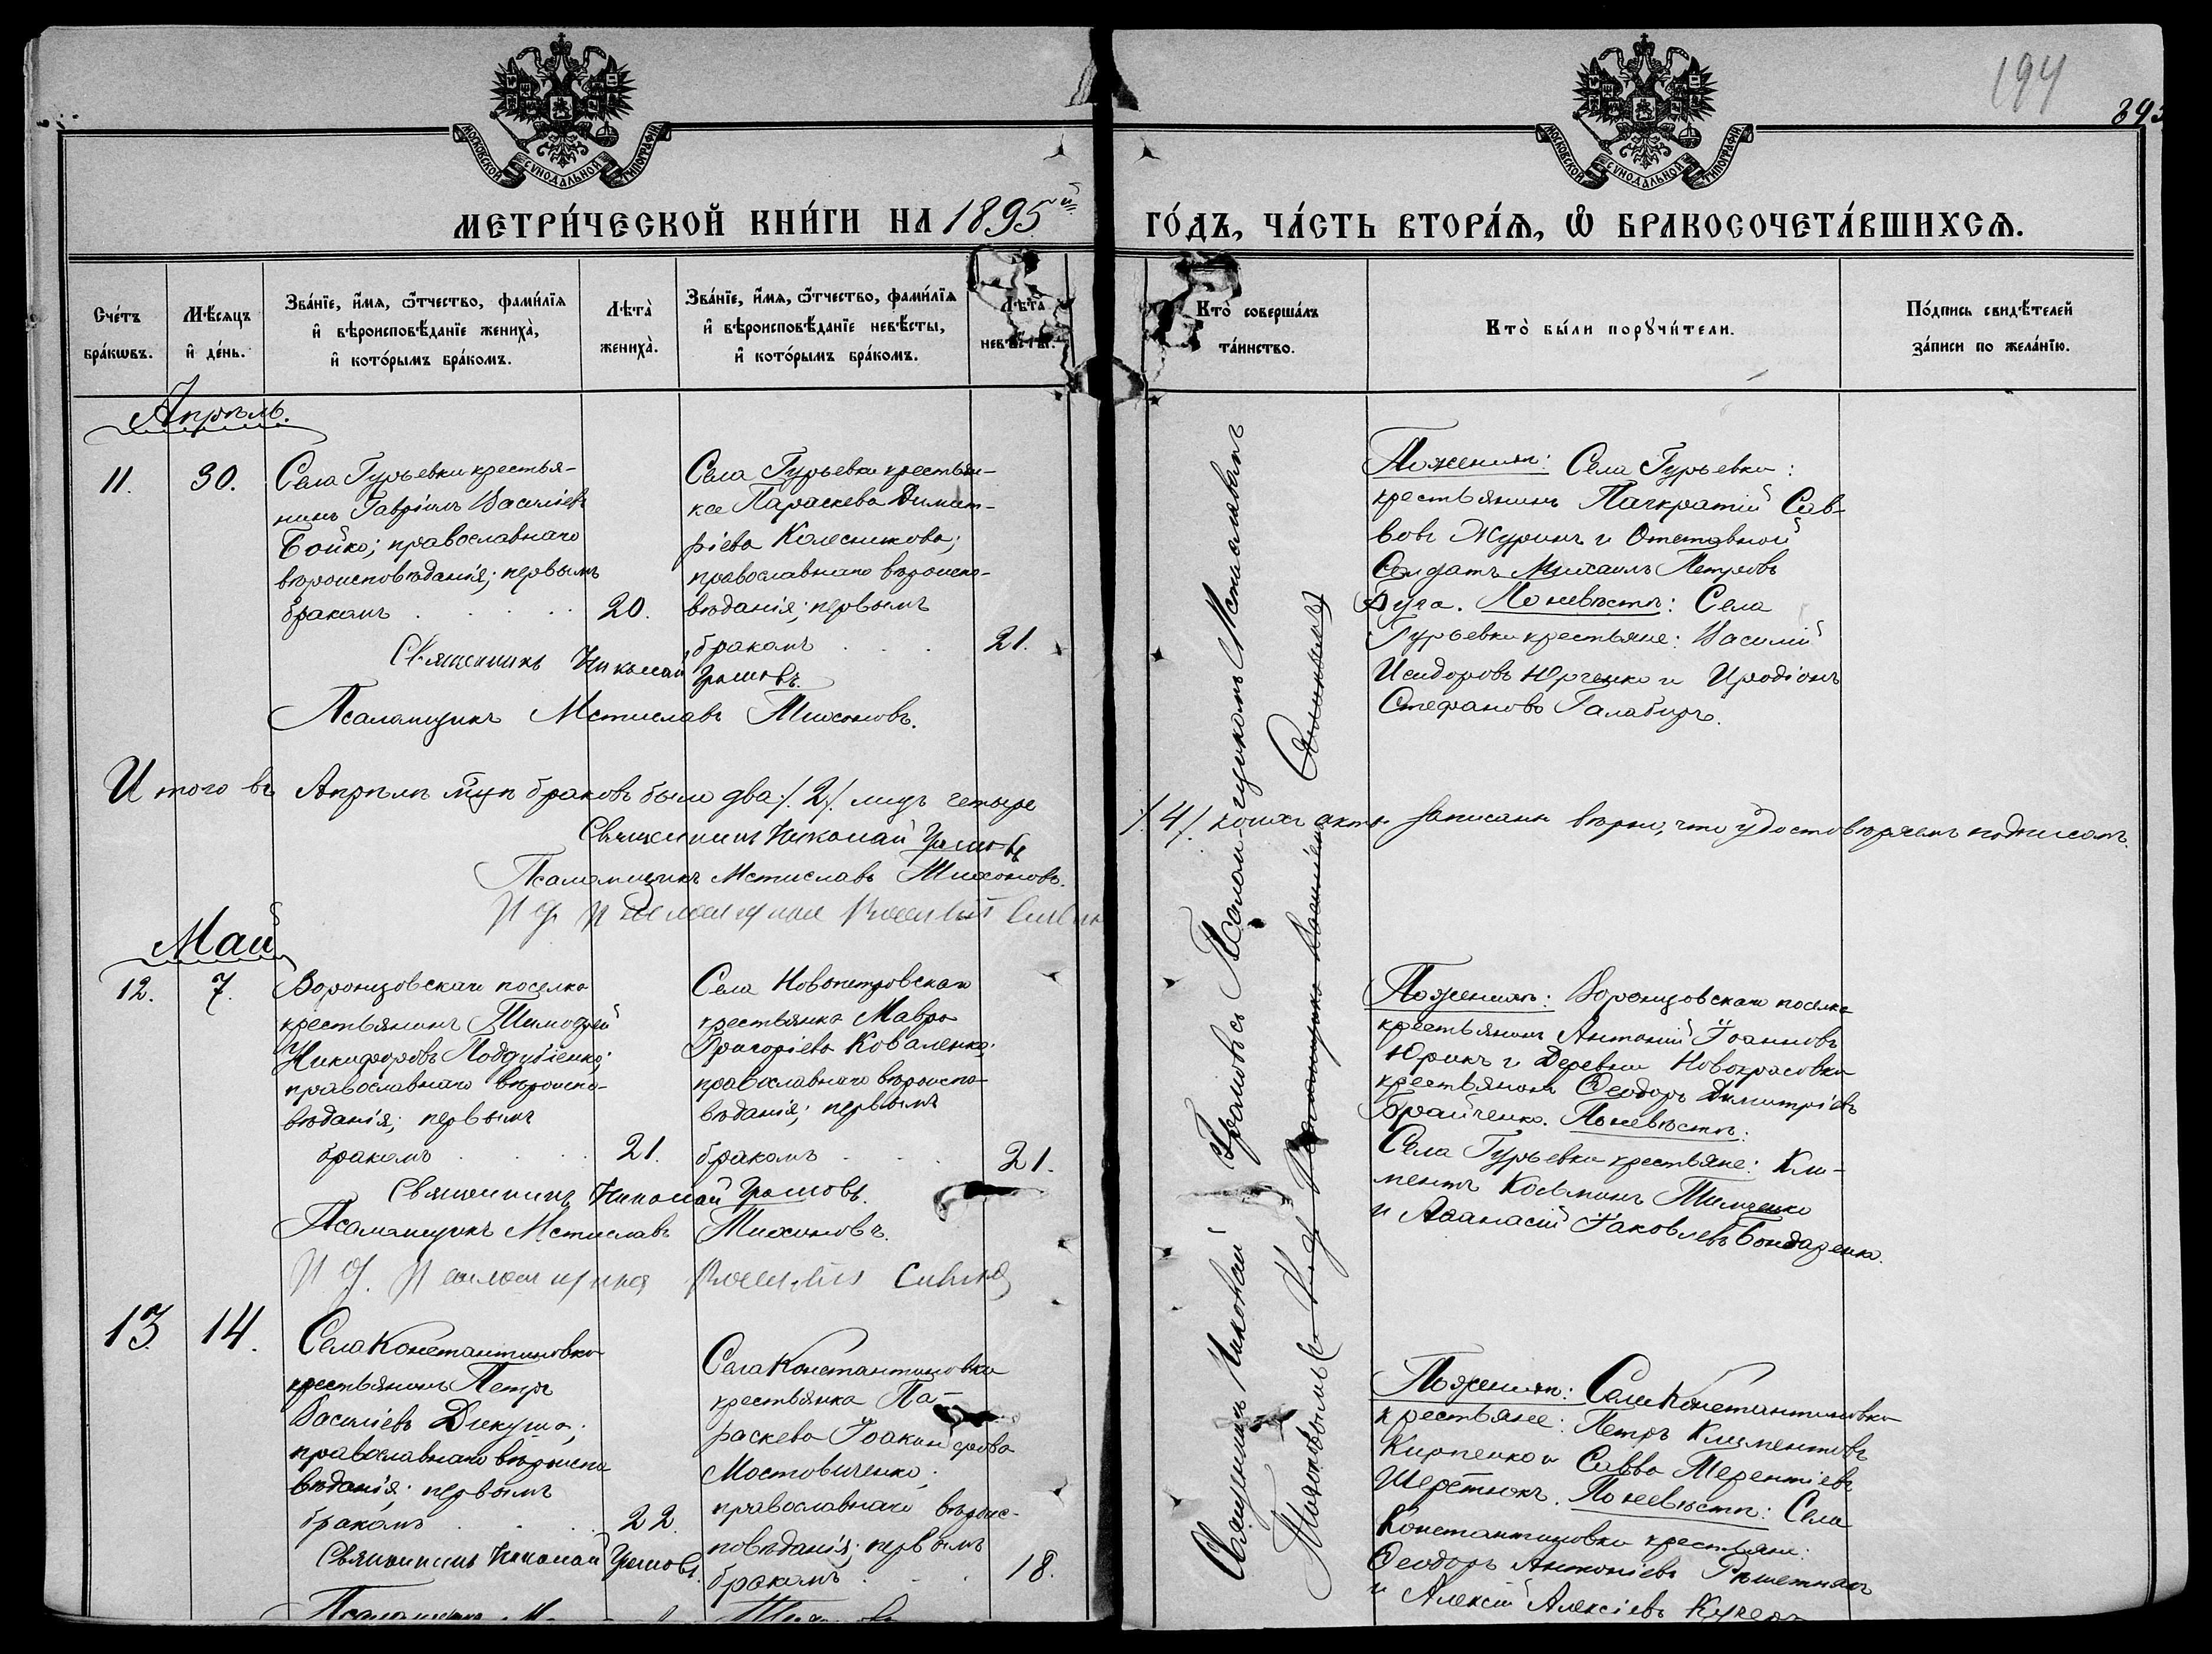 194
895
МОСКОВСКОЙ СѴНОДАЛЬНОЙ ТИПОГРАФІИ
МОСКОВСКОЙ СѴНОДАЛЬНОЙ ТИПОГРАФІИ
МЕТРИ́ЧЕСКОЙ КНИ́ГИ НА 1895й ГО́ДЪ, ЧА́СТЬ ВТОРА́Ѧ, Ѽ БРАКОСОЧЕТА́ВШИХСѦ.
Сче́тъ бра́кѡвъ.
Мѣ́сяцъ и҆ де́нь.
Зва́нїе, и҆́мѧ, ѻ҆́тчество, фами́лїѧ
и҆ вѣроисповѣ́данїе жениха̀,
и҆ кото́рымъ бра́комъ.
Лѣта̀ жениха̀.
Зва́нїе, и҆́мѧ, ѻ҆́тчество, фами́лїѧ
и҆ вѣроисповѣ́данїе невѣ́сты,
и҆ кото́рымъ бра́комъ.
Лѣта̀ невѣ́сты.
Кто̀ соверша́лъ та́инство.
Кто̀ бы́ли порꙋчи́тели.
По́дпись свидѣ́телей
за́писи по жела́нїю.
Апрѣль.
11.
30.
Села Гурьевки крестья-
нинъ Гавріилъ Василіевъ
Бойко; православнаго
вѣроисповѣданія; первымъ
бракомъ . . . . 20.
Села Гурьевки крестьян-
ка Параскева Димит-
ріева Колесникова;
православнаго вѣроиспо-
вѣданія; первымъ
бракомъ . . . 21.
Священникъ Николай Громовъ.
Псаломщикъ Мстиславъ Тихоновъ.
По женихѣ: Села Гурьевки:
крестьянинъ Панкратій Сав-
вовъ Журинъ и Отставной
Солдатъ Михаилъ Петровъ
Дуга. По невѣстѣ: Села
Гурьевки крестьяне: Василій
Исидоровъ Юрченко и Иродіонъ
Стефановъ Галабиръ.
Итого въ Апрѣлѣ м-цѣ браковъ было два /2/ лицъ четыре /4/. коихъ акты записаны вѣрно, что удостовѣряемъ подписомъ.
Священникъ Николай Громовъ
Псаломщикъ Мстиславъ Тихоновъ.
И. д. Псаломщика Василій
Май
12.
7.
Воронцовскаго поселка
крестьянинъ Тимофей
Никифоровъ Поддубіенко;
православнаго вѣроиспо-
вѣданія; первымъ
бракомъ . . . 21.
Села Новопетровскаго
крестьянка Мавра
Григоріева Коваленко;
православнаго вѣроиспо-
вѣданія; первымъ
бракомъ . . . 21.
Священникъ Николай Громовъ.
Псаломщикъ Мстиславъ Тихоновъ.
И. д. Псаломщика Василій
По женихѣ: Воронцовскаго поселка
крестьянинъ Антоній Іоанновъ
Юрикъ и Деревни Новокрасовки
крестьянинъ Ѳеодоръ Димитріевъ
Брайченко. По невѣстѣ:
Села Гурьевки крестьяне: Кли-
ментъ Косьминъ Тимченко
и Аѳанасій Іаковлевъ Бондаренко.
13.
14.
Села Константиновки
крестьянинъ Петръ
Василіевъ Дикуша;
православнаго вѣроиспо-
вѣданія; первымъ
бракомъ . . . 22.
Села Константиновки
крестьянка Па-
раскева Іоакимфова
Мостовиченко;
православнаго вѣроис-
повѣданія; первымъ
бракомъ . . . 18.
Священникъ Николай Громовъ.
По женихѣ: Села Константиновки
крестьяне: Петръ Климентовъ
Кирпенко и Савва Терентіевъ
Шерстюкъ. По невѣстѣ: Села
Константиновки крестьяне:
Ѳеодоръ Антоніевъ Рѣшетнякъ
и Алексій Алексіевъ Кучеръ
Священникъ Николай Громовъ съ Псаломщикомъ Мстиславомъ
Тихоновымъ (и И. д. Псаломщика Василіемъ